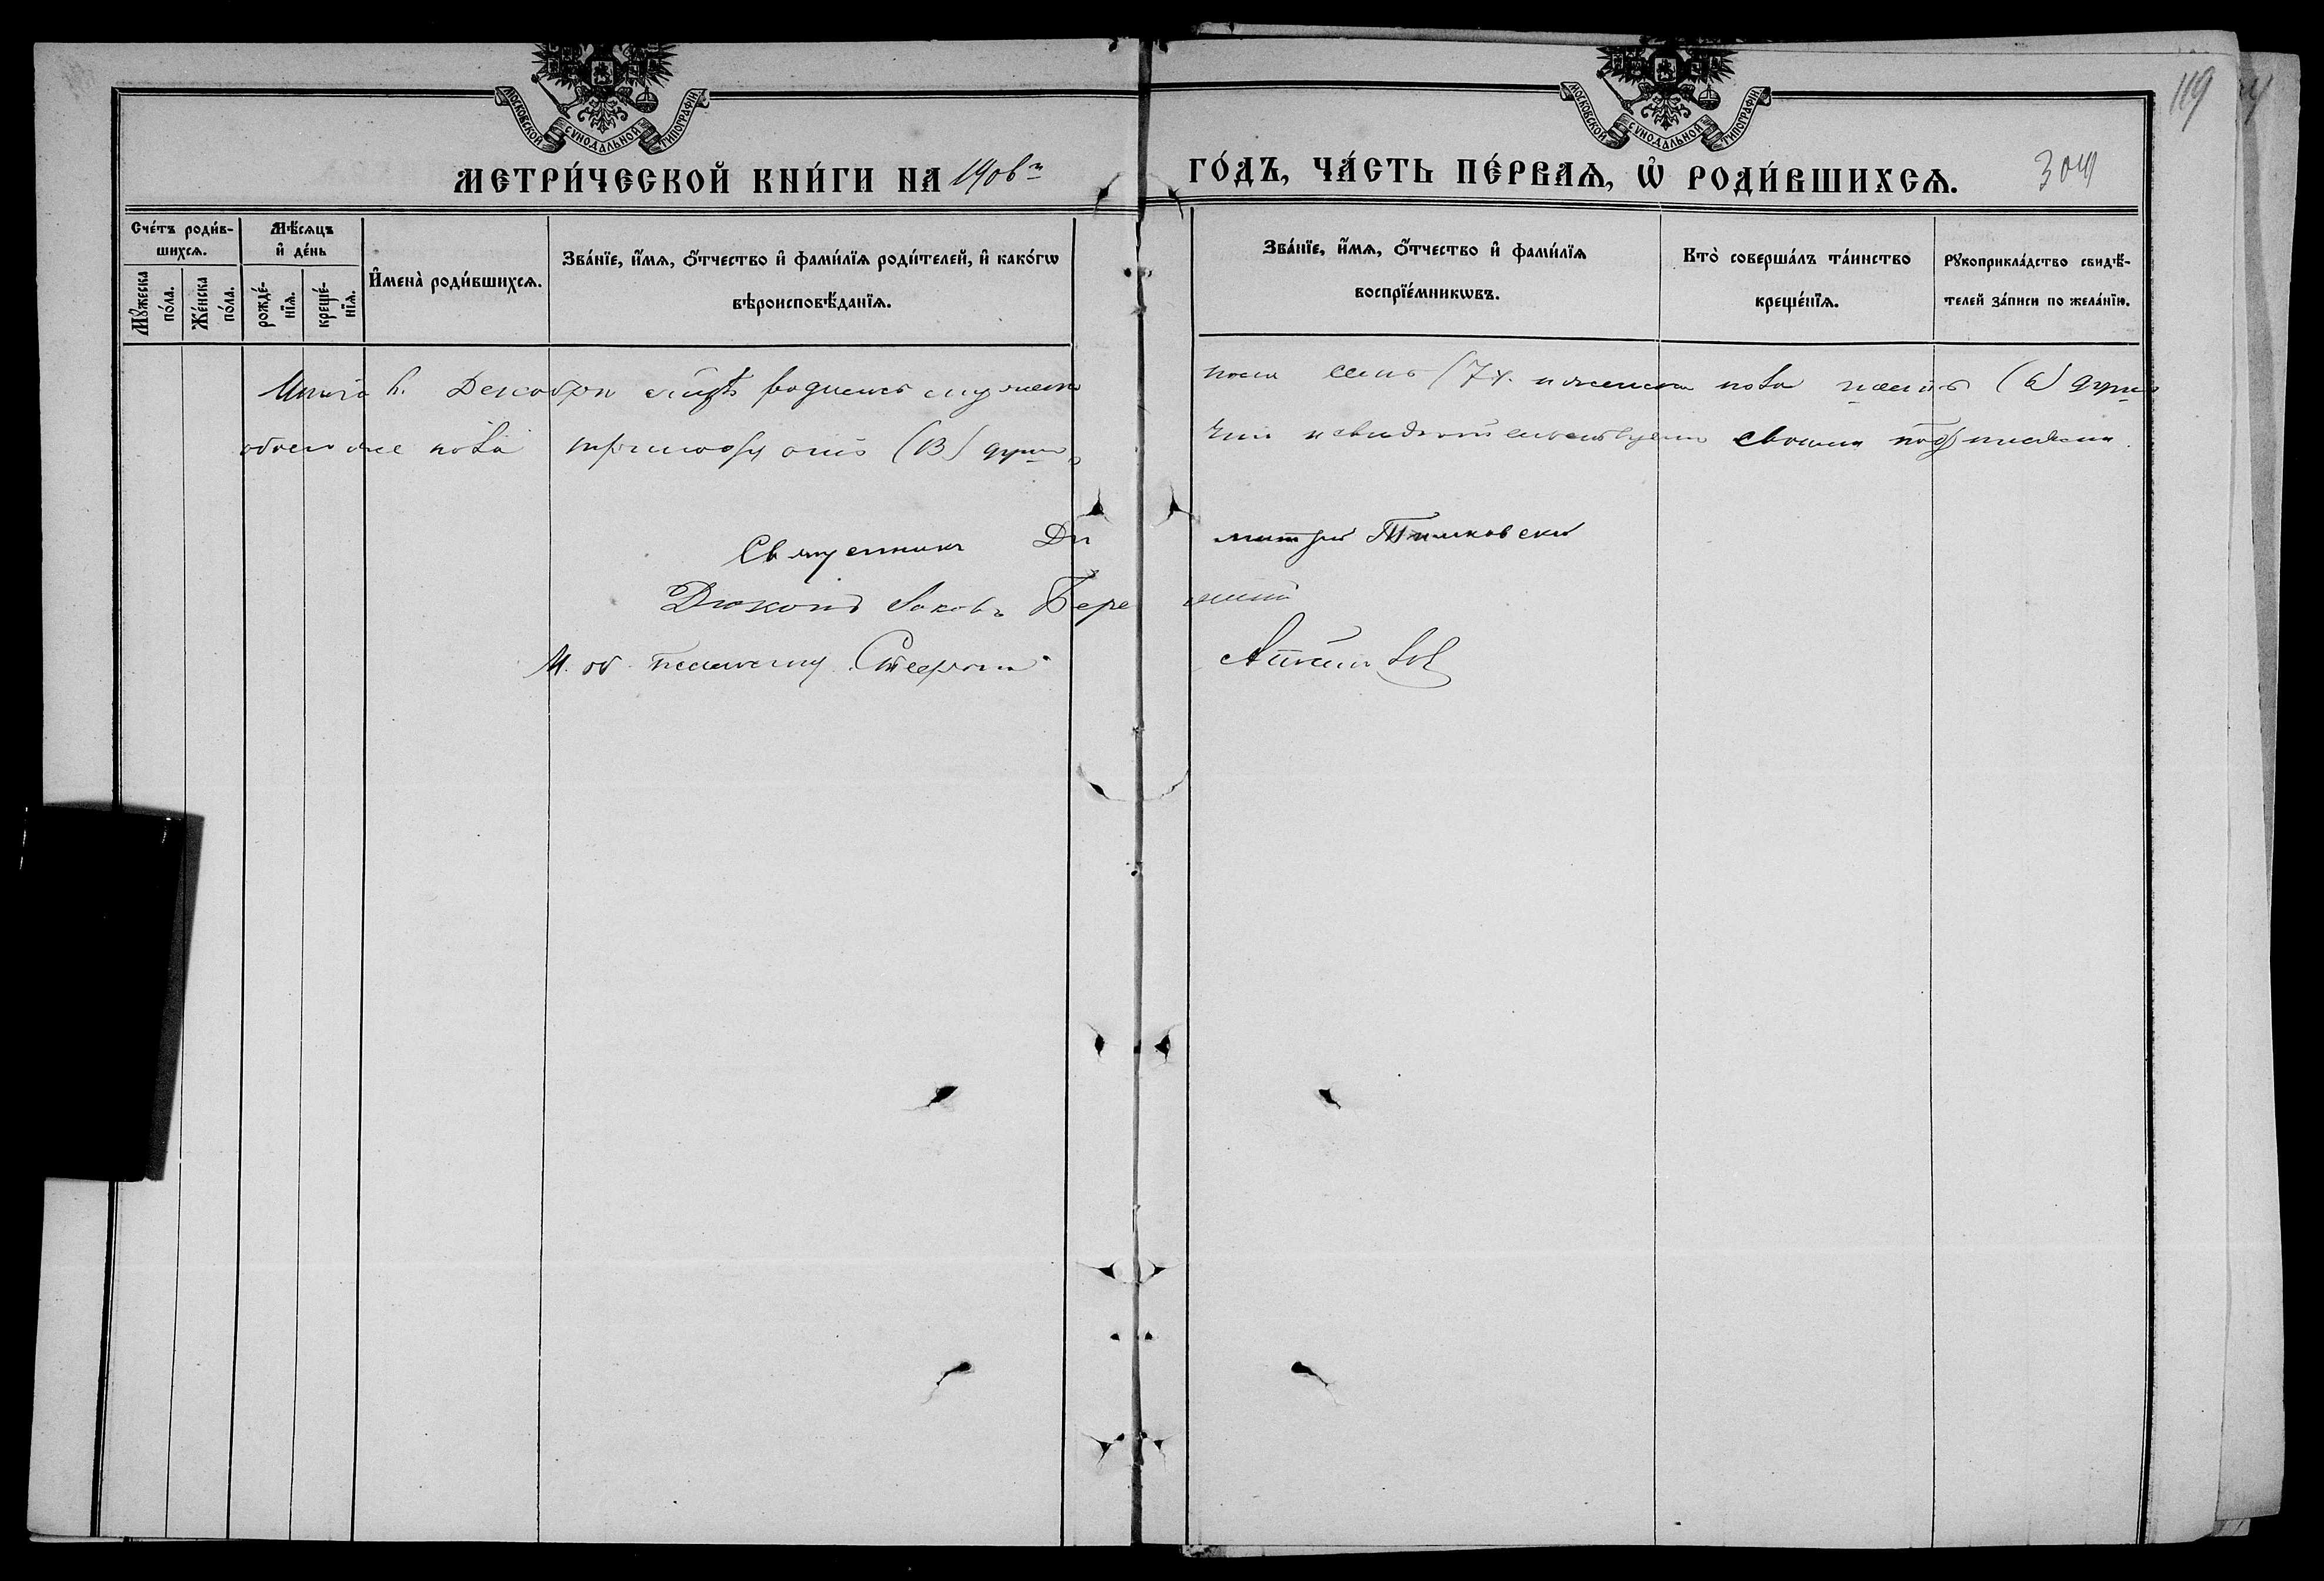 119
304
МОСКОВСКОЙ СѴНОДАЛЬНОЙ ТИПОГРАФІИ
МОСКОВСКОЙ СѴНОДАЛЬНОЙ ТИПОГРАФІИ
МЕТРИ́ЧЕСКОЙ КНИ́ГИ НА 1906 й ГО́ДЪ, ЧА́СТЬ ПЕ́РВАѦ, Ѡ҆ РОДИ́ВШИХСѦ.
Сче́тъ роди́в-
шихсѧ.
Мꙋ́жеска по́ла.
Же́нска по́ла.
Мѣ́сѧцъ
и҆ де́нь
рожде́-нїѧ.
креще́-нїѧ.
И҆мена̀ роди́вшихсѧ.
Зва́нїе, и҆́мѧ, ѻ҆́тчество и҆ фами́лїѧ роди́телей, и҆ како́гѡ
вѣроисповѣ́данїѧ.
Зва́нїе, и҆́мѧ, ѻ҆́тчество и҆ фами́лїѧ
воспрїе́мникѡвъ.
Кто̀ соверша́лъ та́инство
креще́нїѧ.
Рꙋкоприкла́дство свидѣ́-
телей за́писи по жела́нїю.
Итого въ Декабрѣ родилось мужеска пола семь (7) и женска пола шесть (6) душъ
обоего же пола тринадцать (13) душъ, чти и свидѣтельствуемъ своими подписями.
Священникъ Димитрій
Діаконъ Іаковъ Бере
И. об. псаломщ.